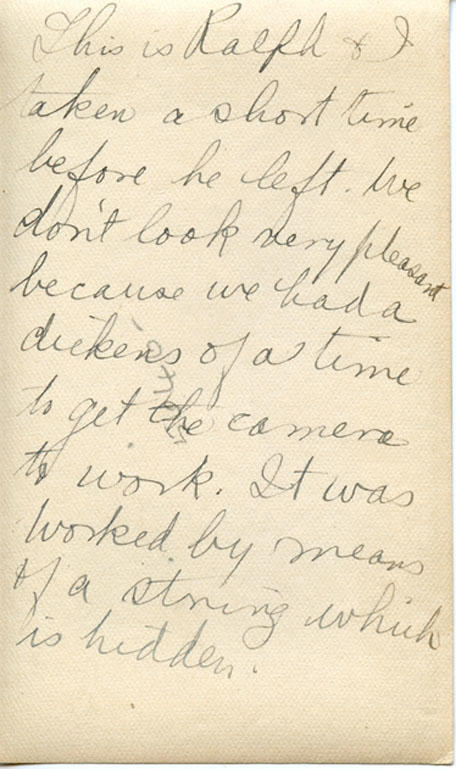 This is Ralph & I
taken a short time
before he left. We
don't look very pleasant
because we had a
dickens of a time
to get the camera
to work. It was
worked by means
of a string which
is hidden.